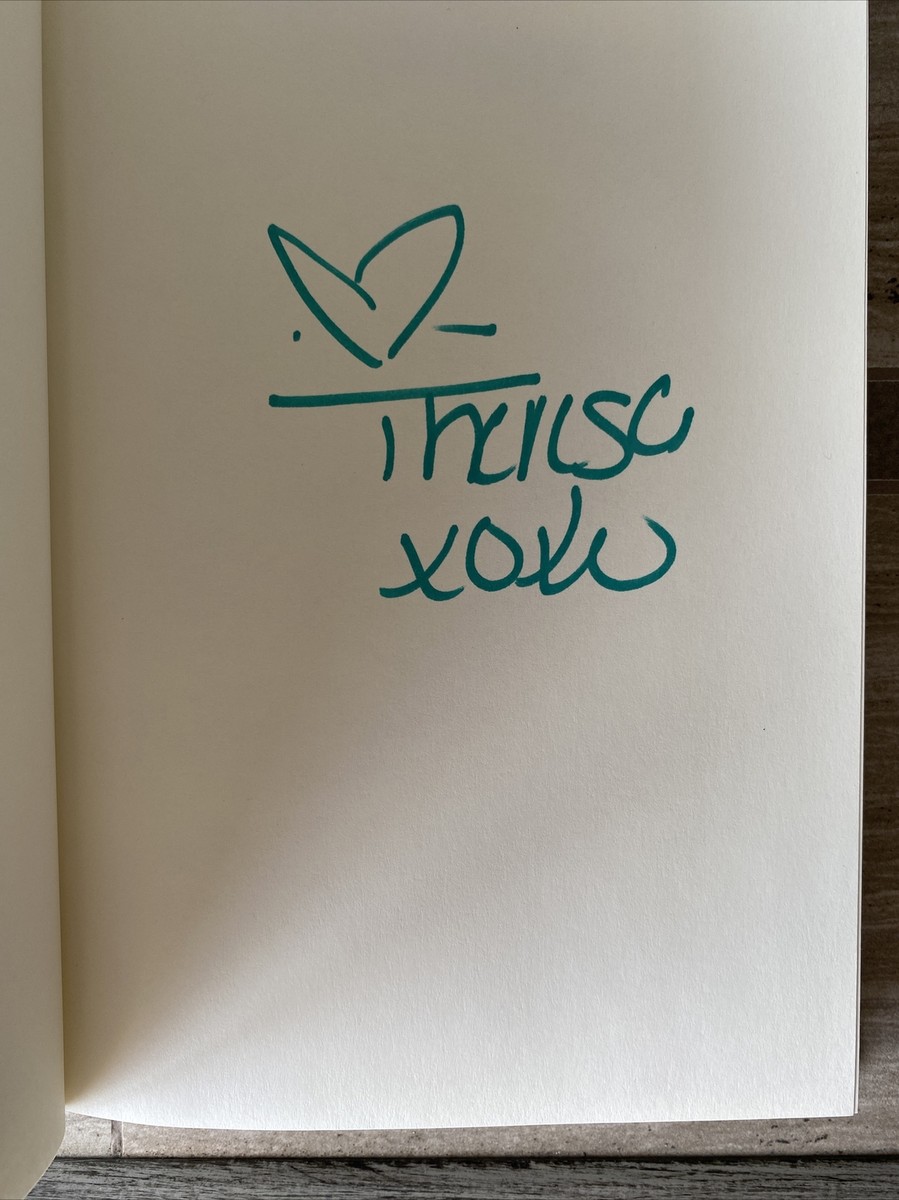 Theresa
xoxo